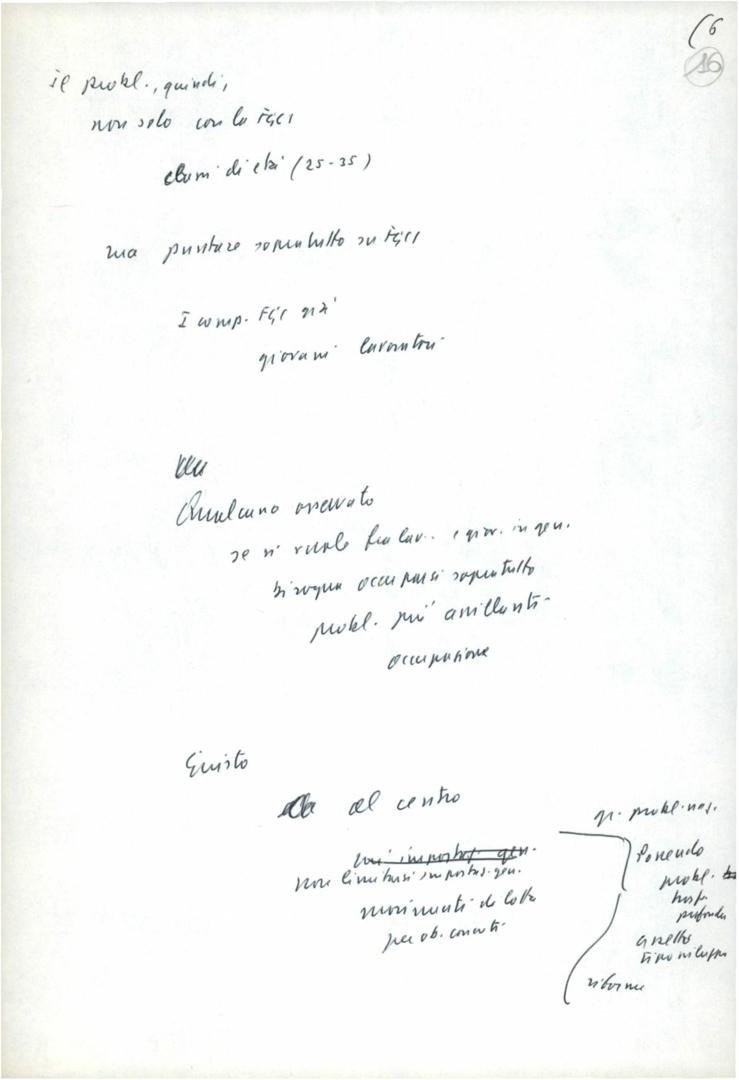 (6
16
il probl., quindi,
non solo con la FGCI
classi di età (25-35)
ma puntare soprattutto su FGCI
I comp. FGCI già
giovani lavoratori
Qualcuno osservato
se si vuole fra lav. e giov. in gen.
bisogna occuparsi soprattutto
probl. più assillanti
occupazione
Giusto
al centro
non limitarsi impostaz. gen.
movimenti di lotta
per ob. concreti
gr. probl. naz.
Ponendo
probl.
trasf.
profonda
assetto
tipo sviluppo
riforme